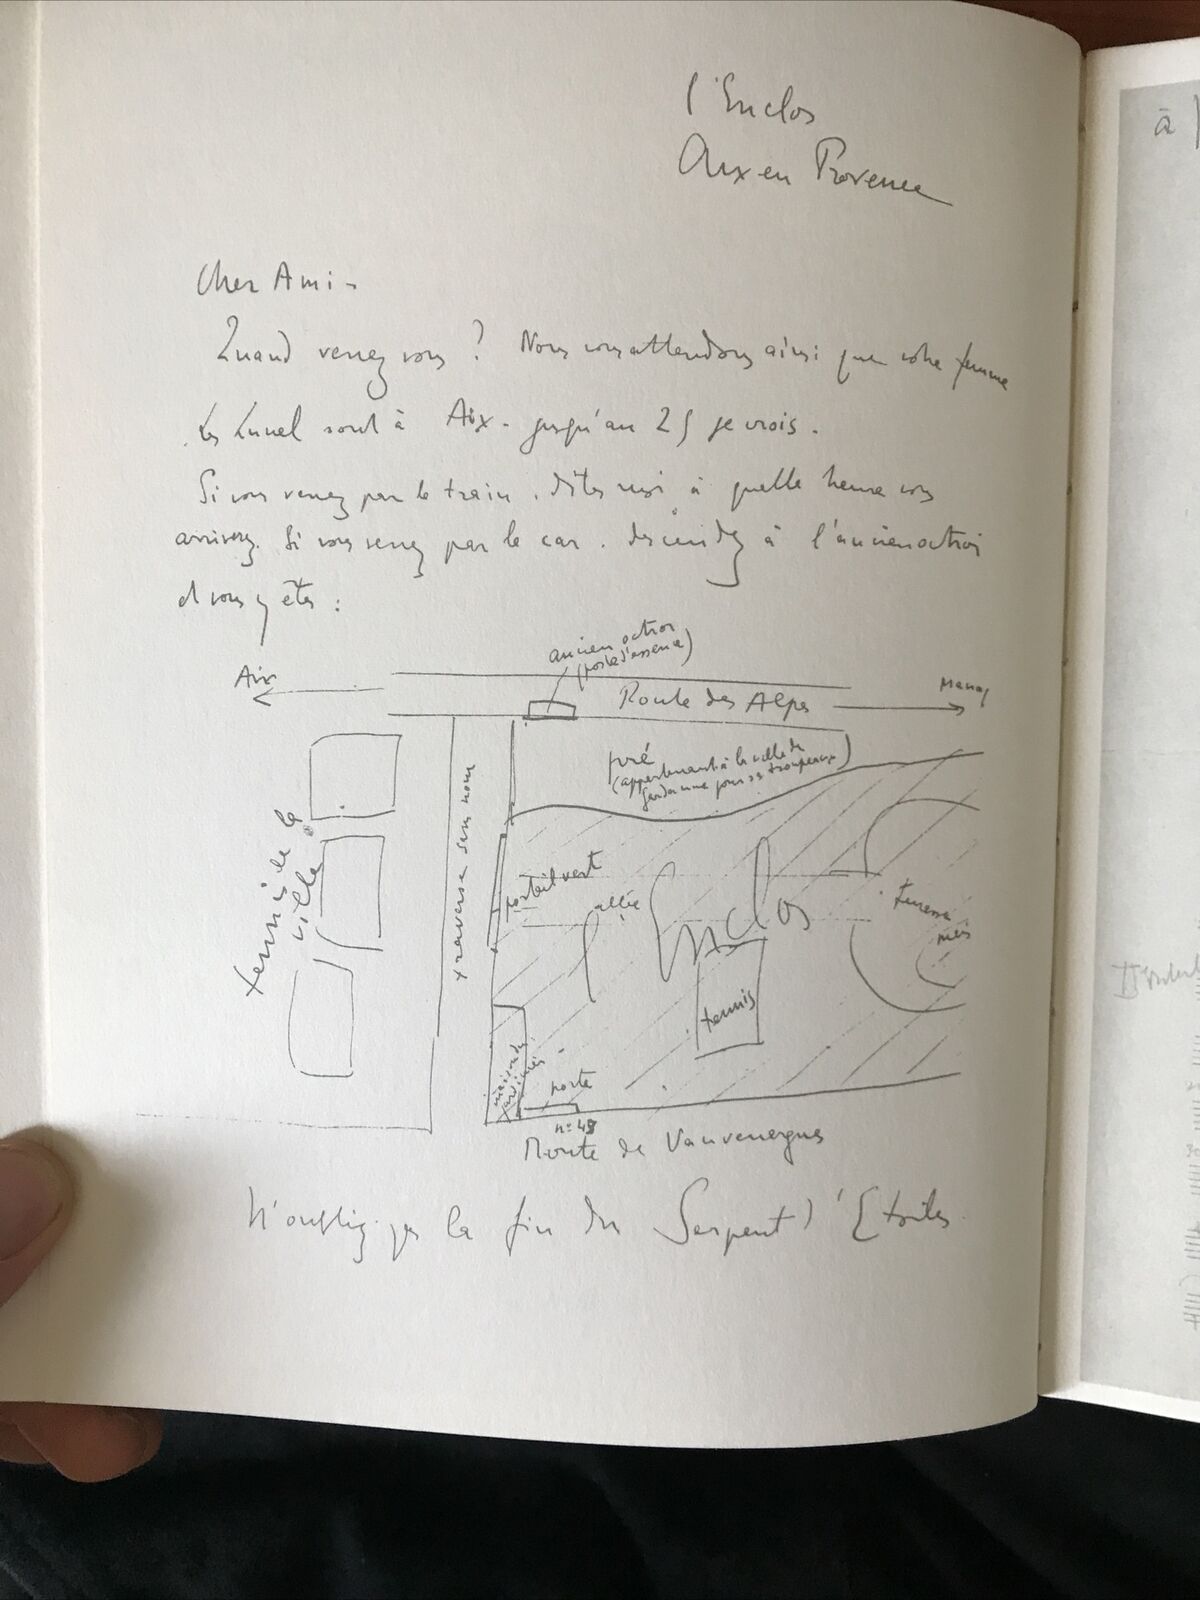 l'Enclos
Aix en Provence
Cher Ami -
Quand venez vous ? Nous vous attendons ainsi que votre femme
Les Lunel sont à Aix - jusqu'au 25 je crois.
Si vous venez par le train. dites moi à quelle heure vous
arrivez. Si vous venez par le car. descendez à l'ancien octroi
et vous y êtes :
ancien octroi
(poste d'essence)
Aix
Route des Alpes
pré
(appartenant à la ville de
Gardanne pour ses troupeaux)
traverse sans nom
tennis de la
ville
portail vert
allée
Enclos
tennis
maison du
jardinier
porte
n° 48
Route de Vauvenargues
N'oubliez pas la fin du Serpent d'Etoiles
à